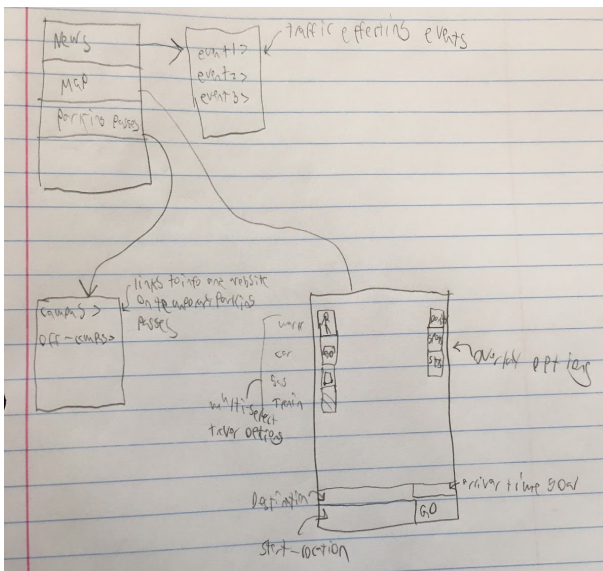 News
Map
parking passes
event1>
event2>
event3>
traffic effecting events
campus>
off-campus>
links to info and website
on temporary parking
passes
walk
car
bus
Train
multi select
travel options
overlay options
Destination
arrival time goal
start-location
GO